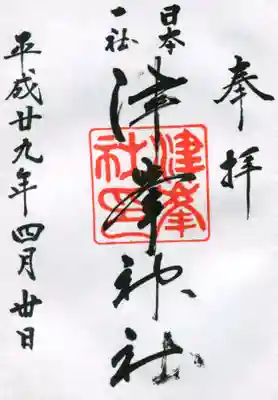 奉拝
日本
一社
津峯神社
津峯
社印
平成廿九年四月卅日